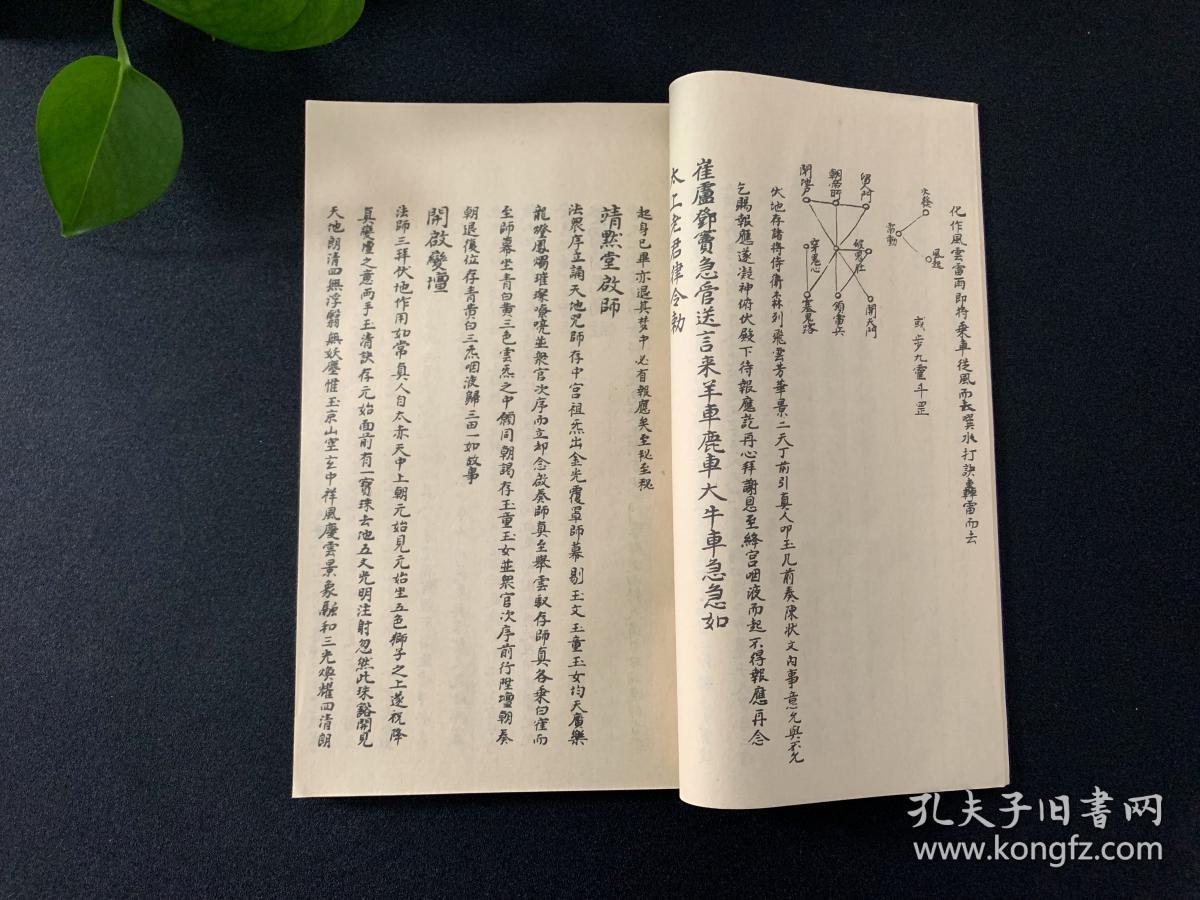 化作風雲雷雨即將乘車從風而去巽水打訣轟雷而去
火發
常動
風起
或步九靈斗罡
鬼門
朝居所
開地戶
破鬼肚
穿鬼心
開天門
領雷兵
塞鬼路
伏地存諸將侍衛森列飛雲芳華景二天丁前引真人叩玉几前奏陳狀文內事意允與不允
乞賜報應遂凝神俯伏殿下待報應訖再心拜謝恩至絳宮咽液而起不得報應再念
崔盧鄧竇急官送言來羊車鹿車大牛車急急如
太上老君律令勅
起身已畢亦退其梦中必有報應矣至祕至祕
靖默堂啟師
法衆序立誦天地咒師存中宮祖炁出金光覆罩師幕剔玉文玉童玉女均天廣樂
龍燈鳳燭璀璨燎嘵並衆官次序而立却念啟奏師真至舉雲馭存師真各乘白雀而
至師幕坐青白黃三色雲炁之中備同朝謁存玉童玉女並衆官次序前行陞壇朝奏
朝退復位存青黃白三炁咽液歸三田一如故事
開啟變壇
法師三拜伏地作用如常真人自太赤天中上朝元始見元始坐五色獅子之上遂祝降
真變壇之意兩手玉清訣存元始面前有一寶珠去地五丈光明注射忽然此珠豁開見
天地朗清四無浮翳無妖塵惟玉京山空玄中祥風慶雲景象融和三光煥耀四清朗
孔夫子旧書网
www.kongfz.com